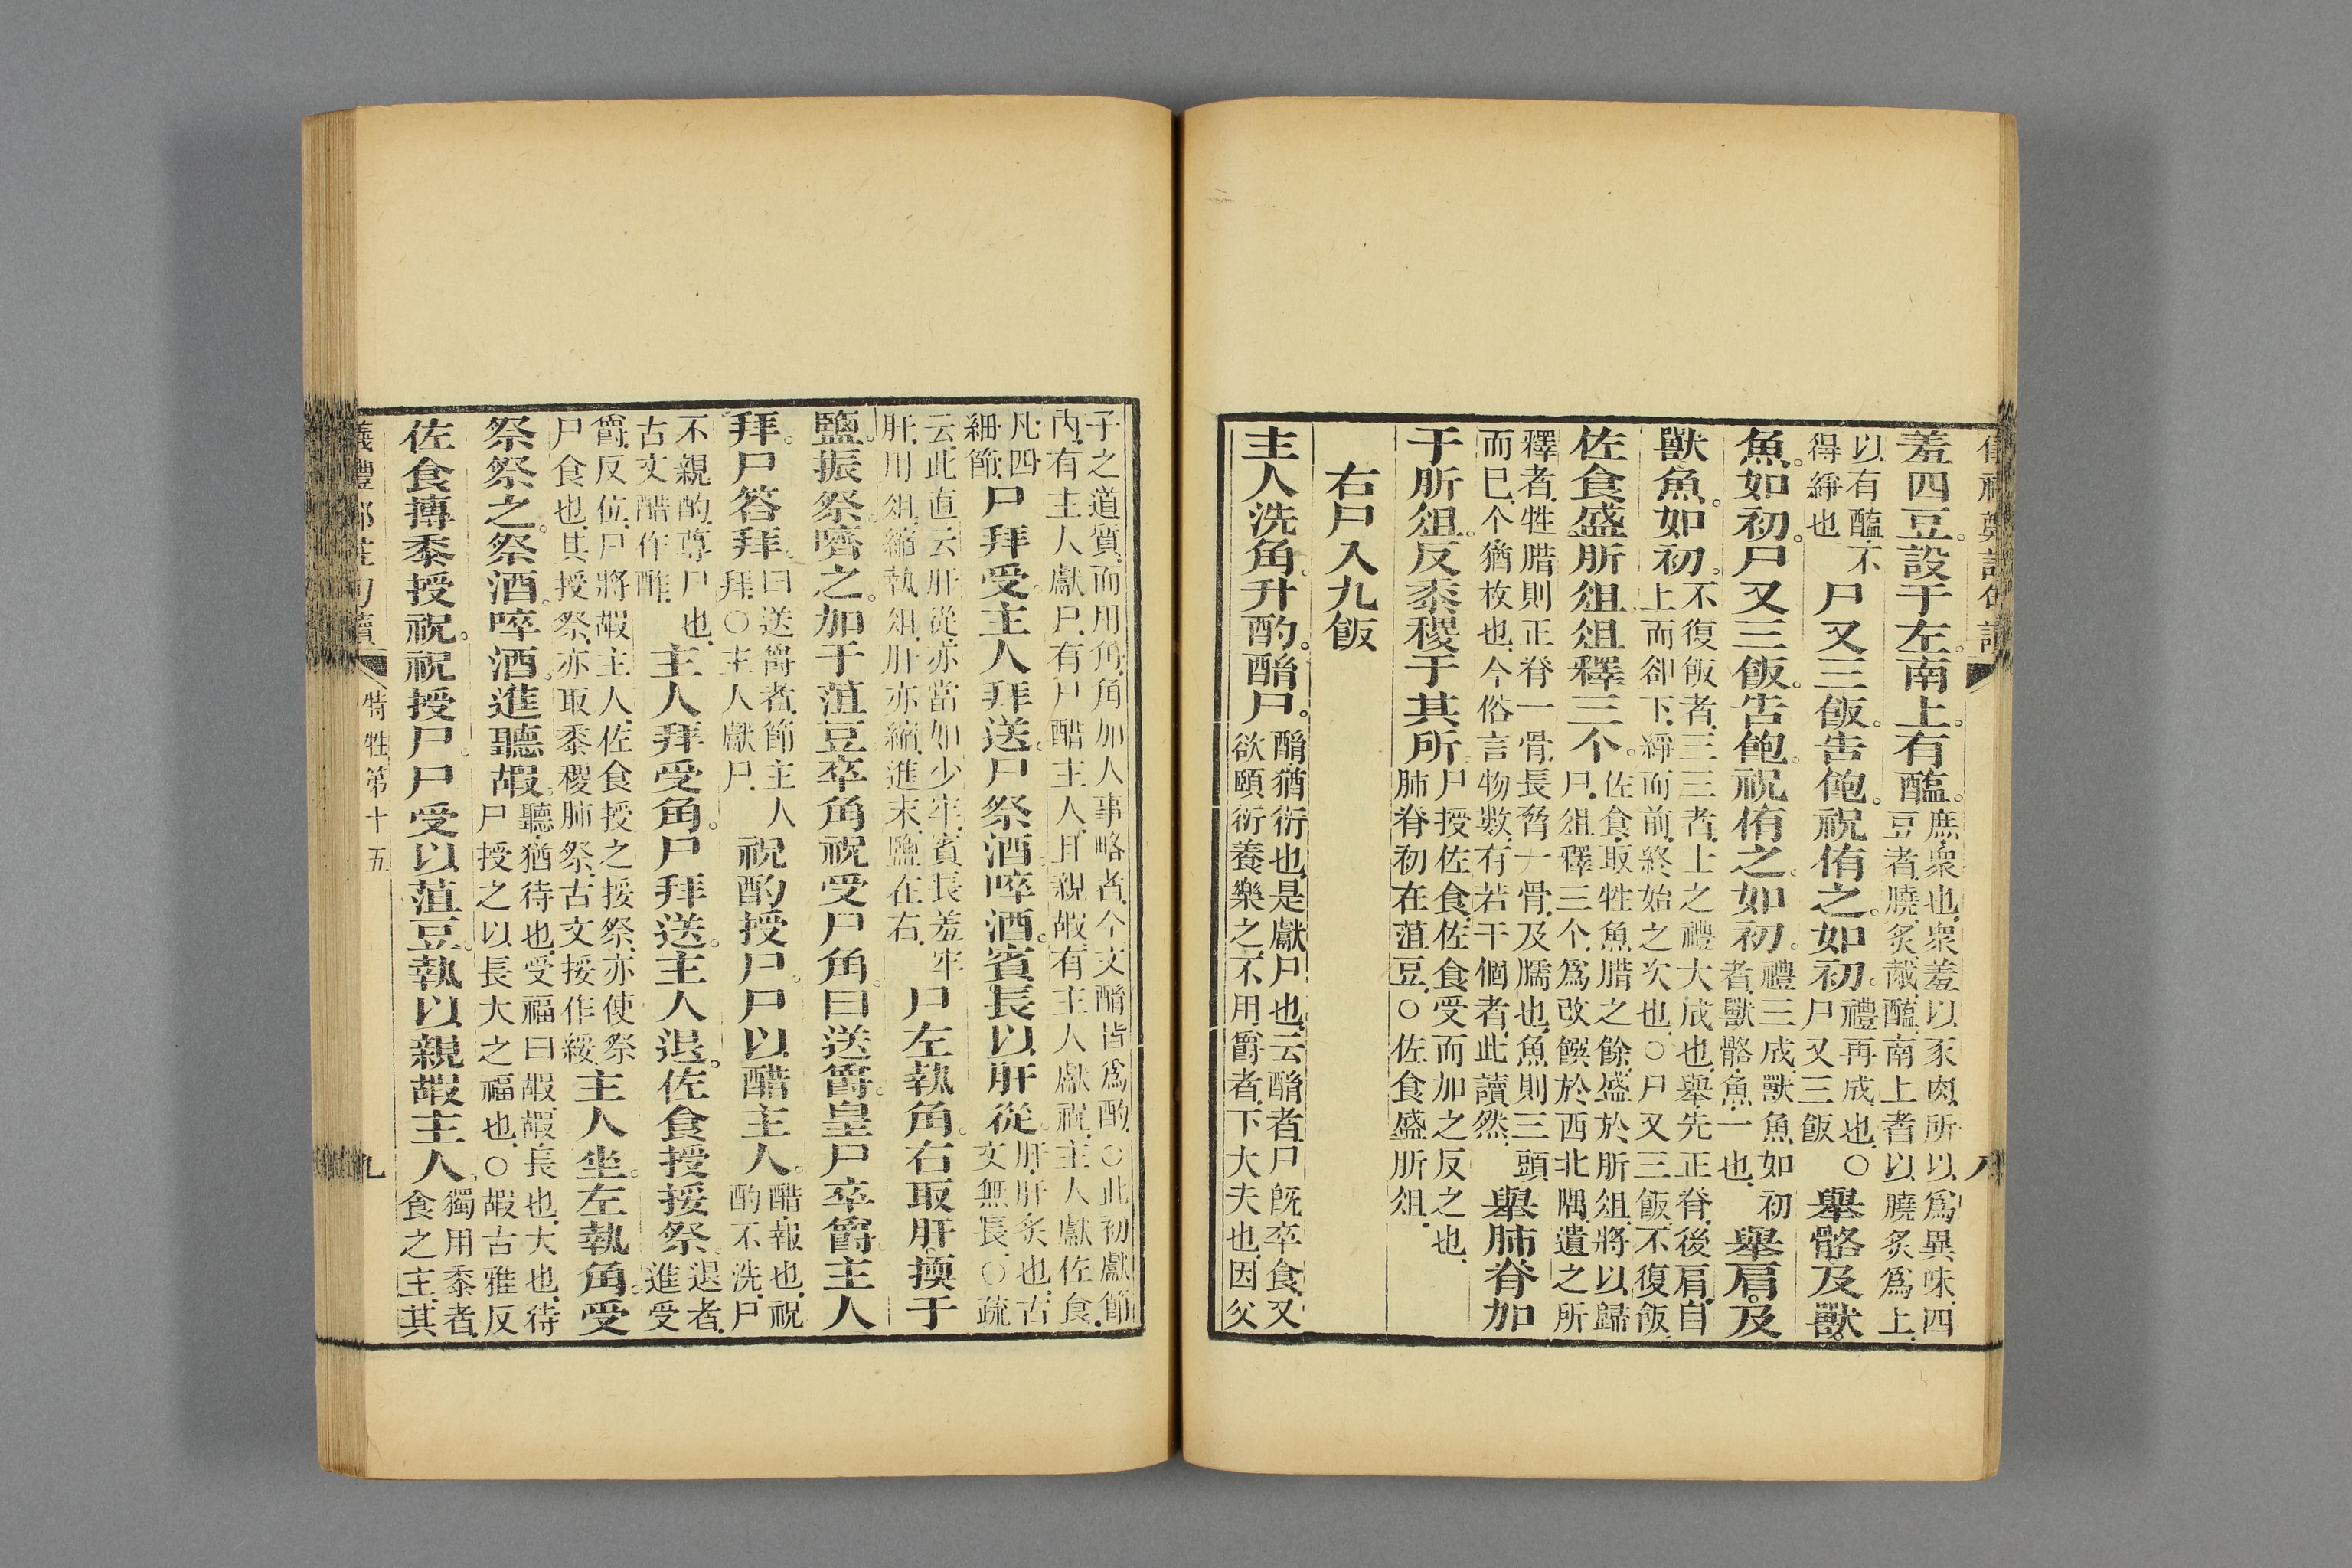 儀禮鄭註句讀
八
羞四豆。設于左。南上。有醢。庶、衆也、衆羞以豕肉、所以爲異味、四
豆者、膮炙胾醢、南上者、以膮炙爲上、
以有醢、不
得綪也、
尸又三飯。告飽。祝侑之。如初。禮再成也、○
尸又三飯
舉骼及獸。
魚。如初。尸又三飯。告飽。祝侑之。如初。禮三成、獸魚如初
者、獸骼魚一也、
舉肩。及
獸魚。如初。不復飯者、三三者、士之禮大成也、舉先正脊、後肩、自
上而卻下、綪而前、終始之次也、○尸又三飯、不復飯、
佐食盛肵俎。俎釋三个。佐食取牲魚腊之餘、盛於肵俎、將以歸
尸、俎釋三个、爲改饌於西北隅、遺之所
釋者、牲腊則正脊一骨、長脅一骨、及臑也、魚則三頭
而已、个、猶枚也、今俗言物數、有若干個者、此讀然、
舉肺脊加
于肵俎。反黍稷于其所尸授佐食、佐食受而加之、反之也、
肺脊初在菹豆、○佐食盛肵俎、
右尸入九飯
主人洗角。升酌。酳尸。酳、猶衍也、是獻尸也、云酳者、尸旣卒食、又
欲頤衍養樂之、不用爵者、下大夫也、因父
子之道質、而用角、角加人事略者、今文酳皆爲酌、○此初獻節
內、有主人獻尸、有尸酢主人、且親嘏、有主人獻祝、主人獻佐食、
凡四
細節、
尸拜受。主人拜送。尸祭酒。啐酒。賓長以肝從。肝、肝炙也、古
文無長、○疏
云、此直云肝從、亦當如少牢、賓長羞牢
肝、用俎、縮執俎、肝亦縮、進末、鹽在右、
尸左執角。右取肝。擩于
鹽。振祭。嚌之。加于菹豆。卒角。祝受尸角。曰送爵。皇尸卒爵。主人
拜。尸答拜。曰送爵者、節主人
拜、○主人獻尸、
祝酌授尸。尸以醋主人。醋、報也、祝
酌不洗、尸
不親酌、尊尸也、
古文醋作酢、
主人拜受角。尸拜送。主人退。佐食授挼祭。退者、
進受
爵反位、尸將嘏主人、佐食授之挼祭、亦使祭
尸食也、其授祭、亦取黍稷肺祭、古文挼作綏、
主人坐。左執角。受
祭祭之。祭酒。啐酒。進聽嘏。聽、猶待也、受福曰嘏、嘏、長也、大也、待
尸授之以長大之福也、○嘏古雅反
佐食摶黍授祝。祝授尸。尸受以菹豆。執以親嘏主人。獨用黍者、
食之主、其
儀禮鄭註句讀
特牲第十五
九